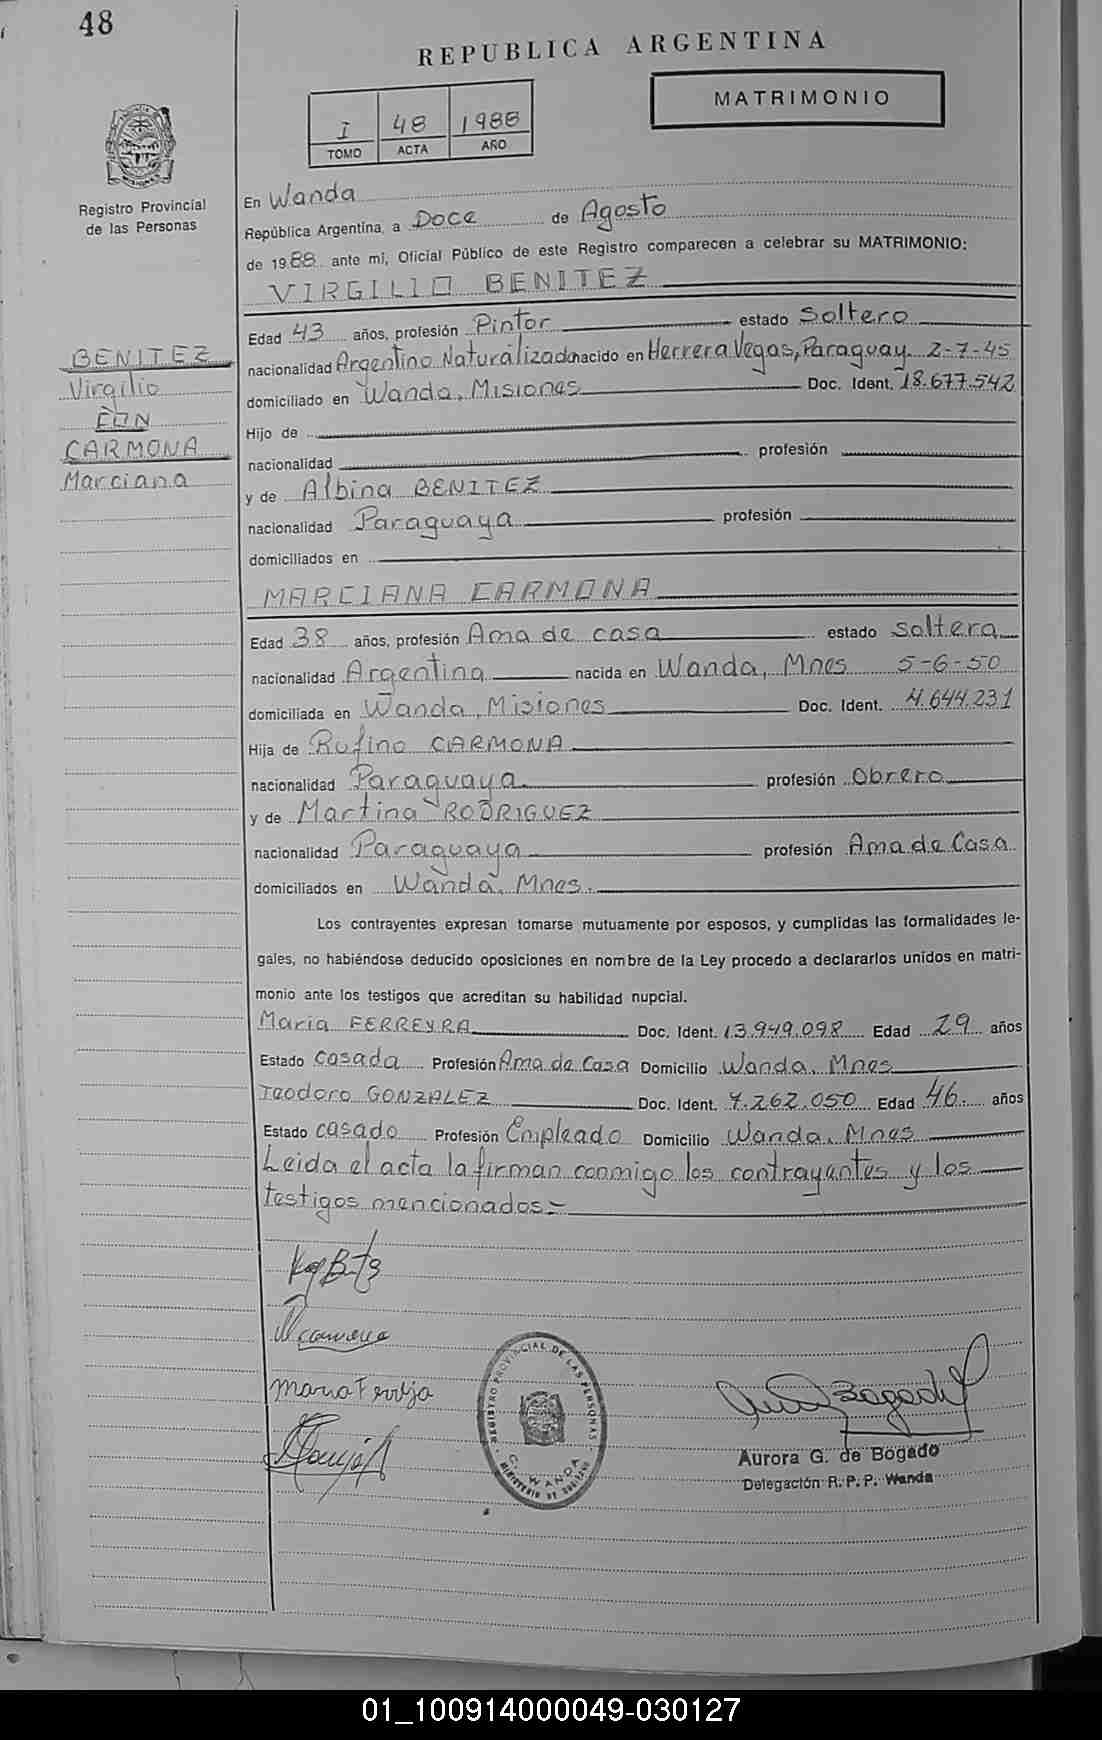 48
REPUBLICA ARGENTINA
MATRIMONIO
I 48 1988
TOMO ACTA AÑO
Registro Provincial
de las Personas
En Wanda
República Argentina, a Doce de Agosto
de 1988 ante mi, Oficial Público de este Registro comparecen a celebrar su MATRIMONIO:
VIRGILIO BENITEZ
BENITEZ
Virgilio
CON
CARMONA
Marciana
Edad 43 años, profesión Pintor estado Soltero
nacionalidad Argentino Naturalizado nacido en Herrera Vegas, Paraguay 2-7-45
domiciliado en Wanda, Misiones Doc. Ident. 18.677.542
Hijo de
nacionalidad profesión
y de Albina BENITEZ
nacionalidad Paraguaya profesión
domiciliados en
MARCIANA CARMONA
Edad 38 años, profesión Ama de casa estado Soltera
nacionalidad Argentina nacida en Wanda, Mnes 5-6-50
domiciliada en Wanda, Misiones Doc. Ident. 4.644.231
Hija de Rufino CARMONA
nacionalidad Paraguaya profesión Obrero
y de Martina RODRIGUEZ
nacionalidad Paraguaya profesión Ama de Casa
domiciliados en Wanda, Mnes.
Los contrayentes expresan tomarse mutuamente por esposos, y cumplidas las formalidades le-
gales, no habiéndose deducido oposiciones en nombre de la Ley procedo a declararlos unidos en matri-
monio ante los testigos que acreditan su habilidad nupcial.
Maria FERREYRA Doc. Ident. 13.949.098 Edad 29 años
Estado Casada Profesión Ama de Casa Domicilio Wanda, Mnes
Teodoro GONZALEZ Doc. Ident. 7.262.050 Edad 46 años
Estado casado Profesión Empleado Domicilio Wanda, Mnes
Leida el acta la firman conmigo los contrayentes y los
testigos mencionados.-
REGISTRO PROVINCIAL DE LAS PERSONAS
WANDA
MINISTERIO DE GOBIERNO
Aurora G. de Bogado
Delegación R. P. P. Wanda
01_100914000049-030127